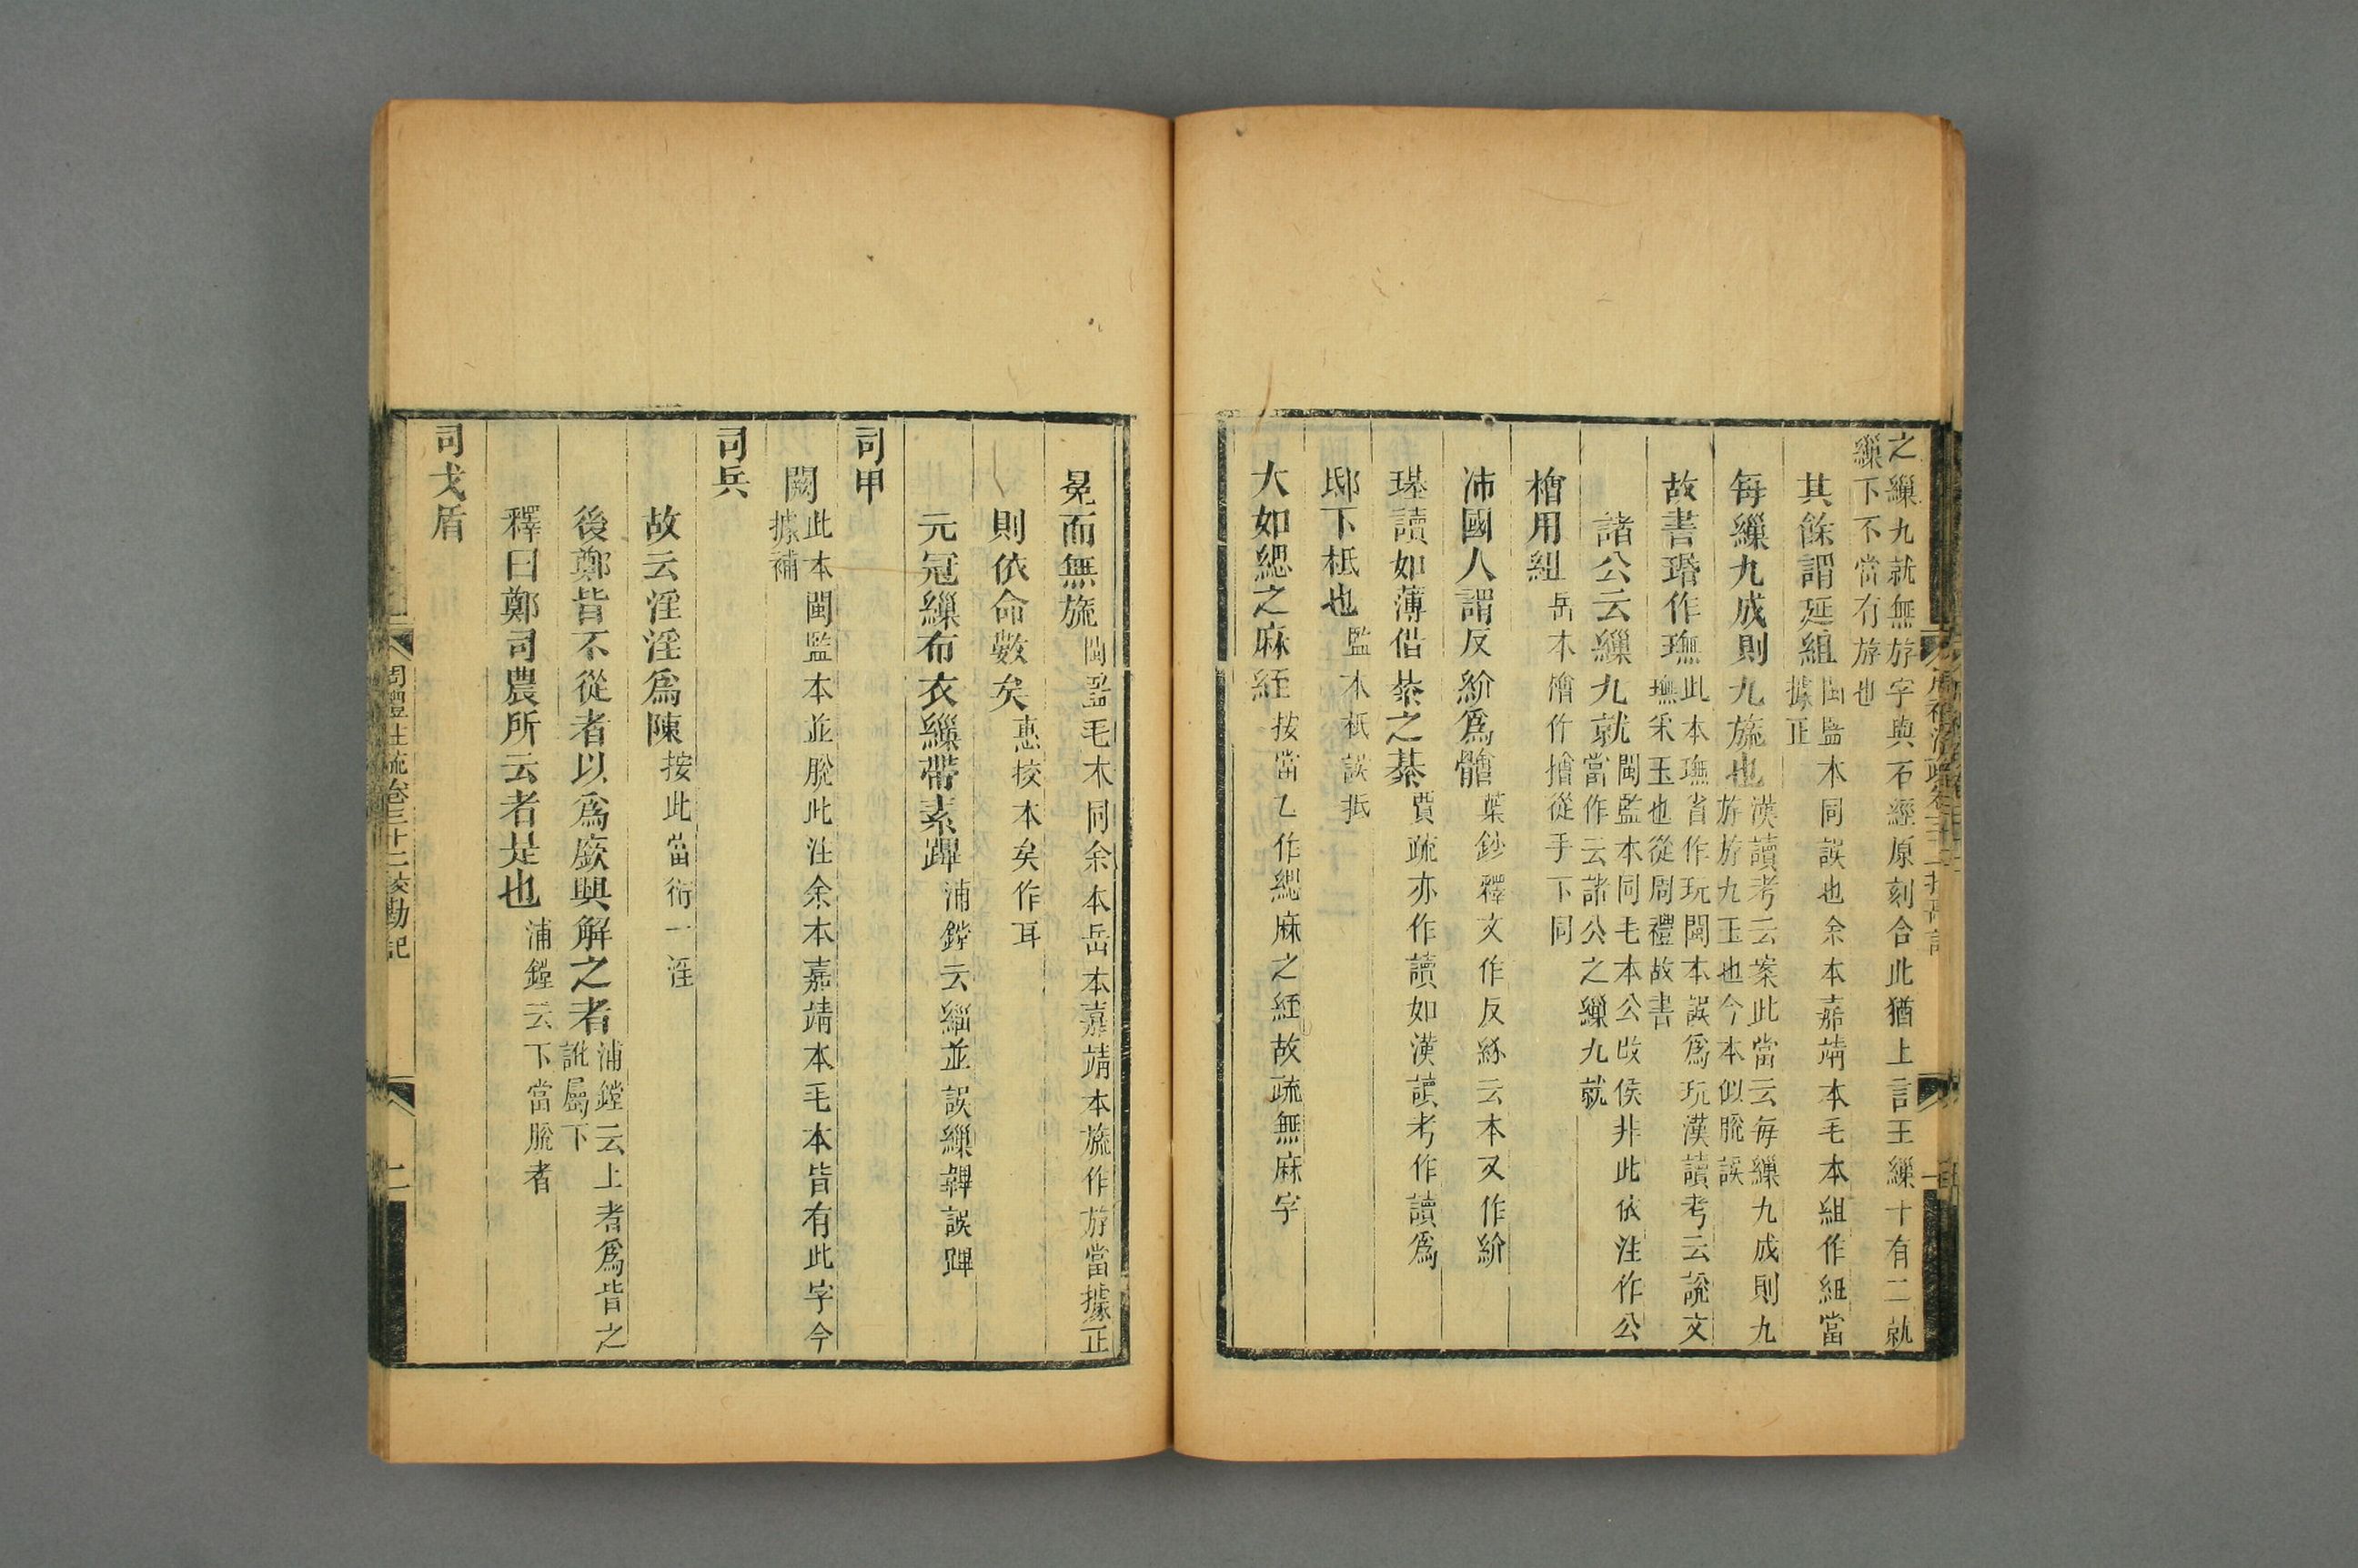 之繅九就無斿字與石經原刻合此猶上言王繅十有二就
繅下不當有斿也
其餘謂延組閩監本同誤也余本嘉靖本毛本組作紐當
據正
每繅九成則九旒也漢讀考云案此當云每繅九成則九
斿斿九玉也今本似脫誤
故書㻉作璑此本璑省作玩閩本誤爲玩漢讀考云說文
璑釆玉也從周禮故書
諸公云繅九就閩監本同毛本公改侯非此依注作公
當作云諸公之繅九就
檜用組岳本檜作㩓從手下同
沛國人謂反紒爲䯤葉鈔釋文作反紒云本又作紒
璂讀如薄借綦之綦賈疏亦作讀如漢讀考作讀爲
邸下柢也監本柢誤抵
大如緦之麻絰按當乙作緦麻之絰故疏無麻字
周禮注疏卷三十二挍勘記
冕而無旒閩監毛本同余本岳本嘉靖本旒作斿當據正
則依命數矣惠挍本矣作耳
元冠繅布衣繅帶素韠浦鏜云緇並誤繅韠誤蹕
司甲
闕此本閩監本並脫此注余本嘉靖本毛本皆有此字今
據補
司兵
故云淫淫爲陳按此當衍一淫
後鄭皆不從者以爲廞興解之者浦鏜云上者爲皆之
訛屬下
釋曰鄭司農所云者是也浦鏜云下當脫者
司戈盾
周禮注疏卷三十二挍勘記
二